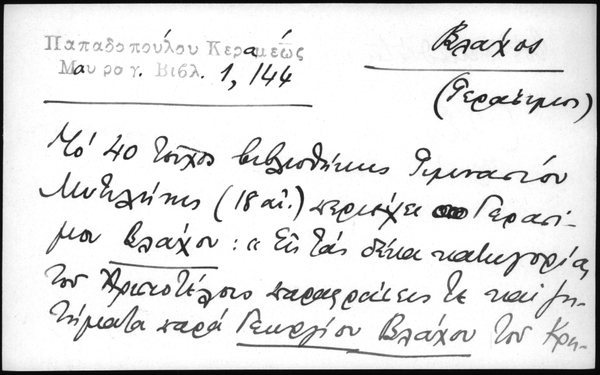 Παπαδοπούλου Κεραμέως
Μαυρογ. Βιβλ. 1, 144
Βλάχος
(Γεράσιμος)
Τό 40 τεῦχος βιβλιοθήκης Γυμνασίου
Μυτιλήνης (18 αἰ.) περιέχει Γερασί-
μου Βλάχου : « Εἰς τάς δέκα κατηγορίας
τοῦ Ἀριστοτέλους παραφράσεις τε καί ζη-
τήματα παρά Γεωργίου Βλάχου τοῦ Κρη-